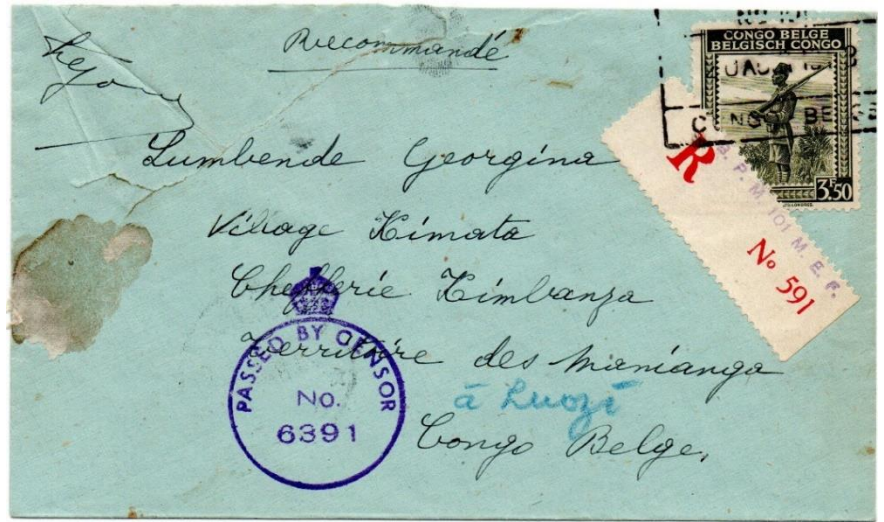 Recommandé
CONGO BELGE
BELGISCH CONGO
3.50
CONGO BELGE
R
B. P. M. 101 M. E. F.
No 591
Lumbende Georgina
Village Kimata
Chefferie Kimbanza
Territoire des Manianga
à Luozi
Congo Belge.
PASSED BY CENSOR
No.
6391